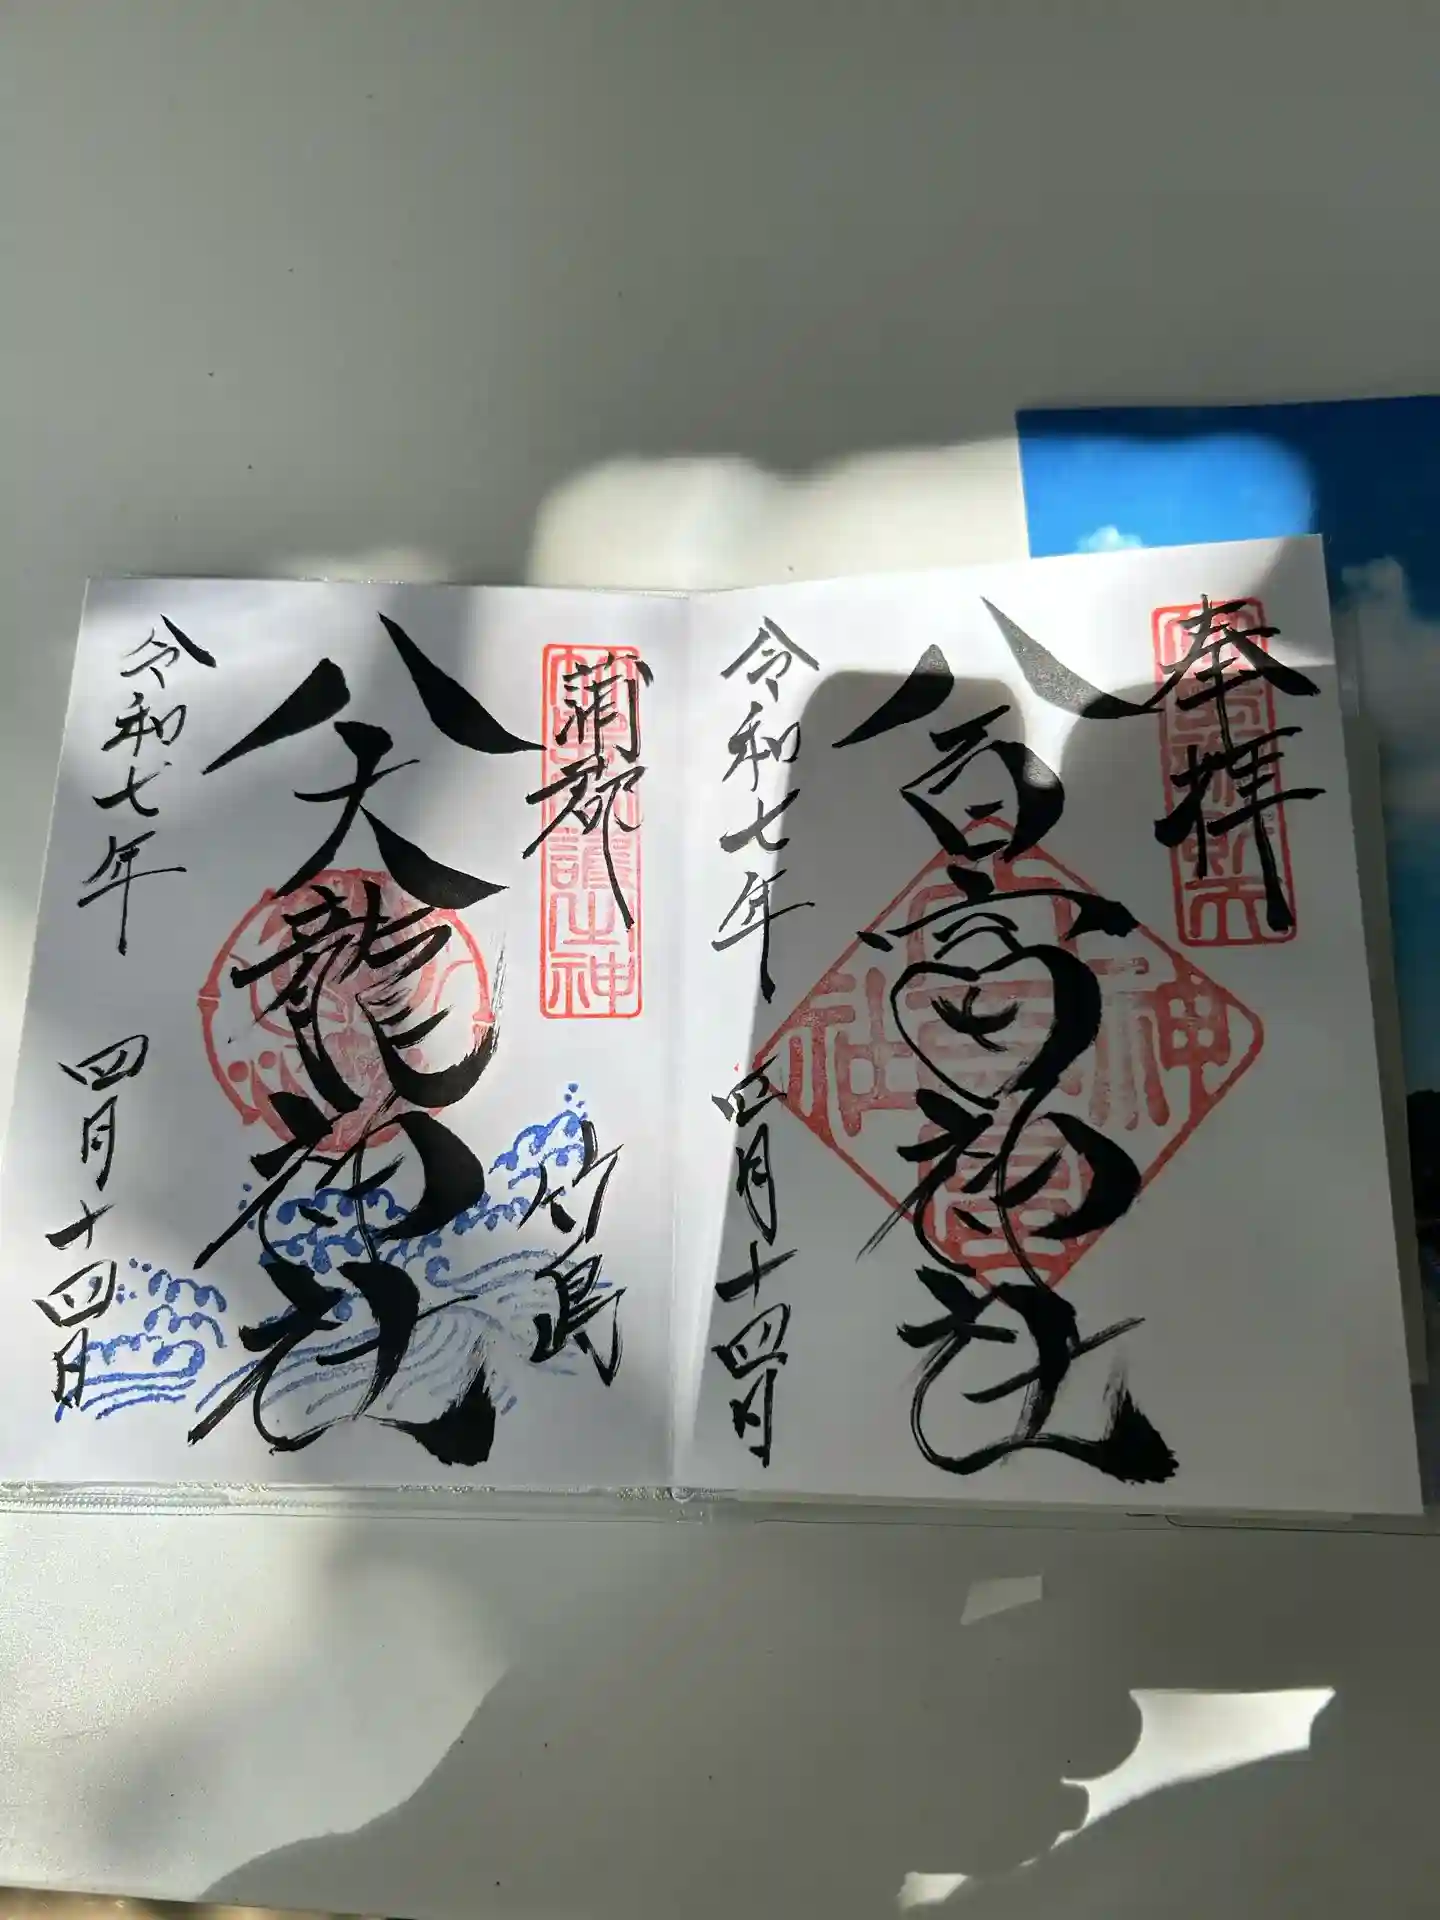 奉拝
八百富神社
令和七年 四月十四日
蒲郡
竹島
八大龍神社
令和七年 四月十四日
護土神
神
社